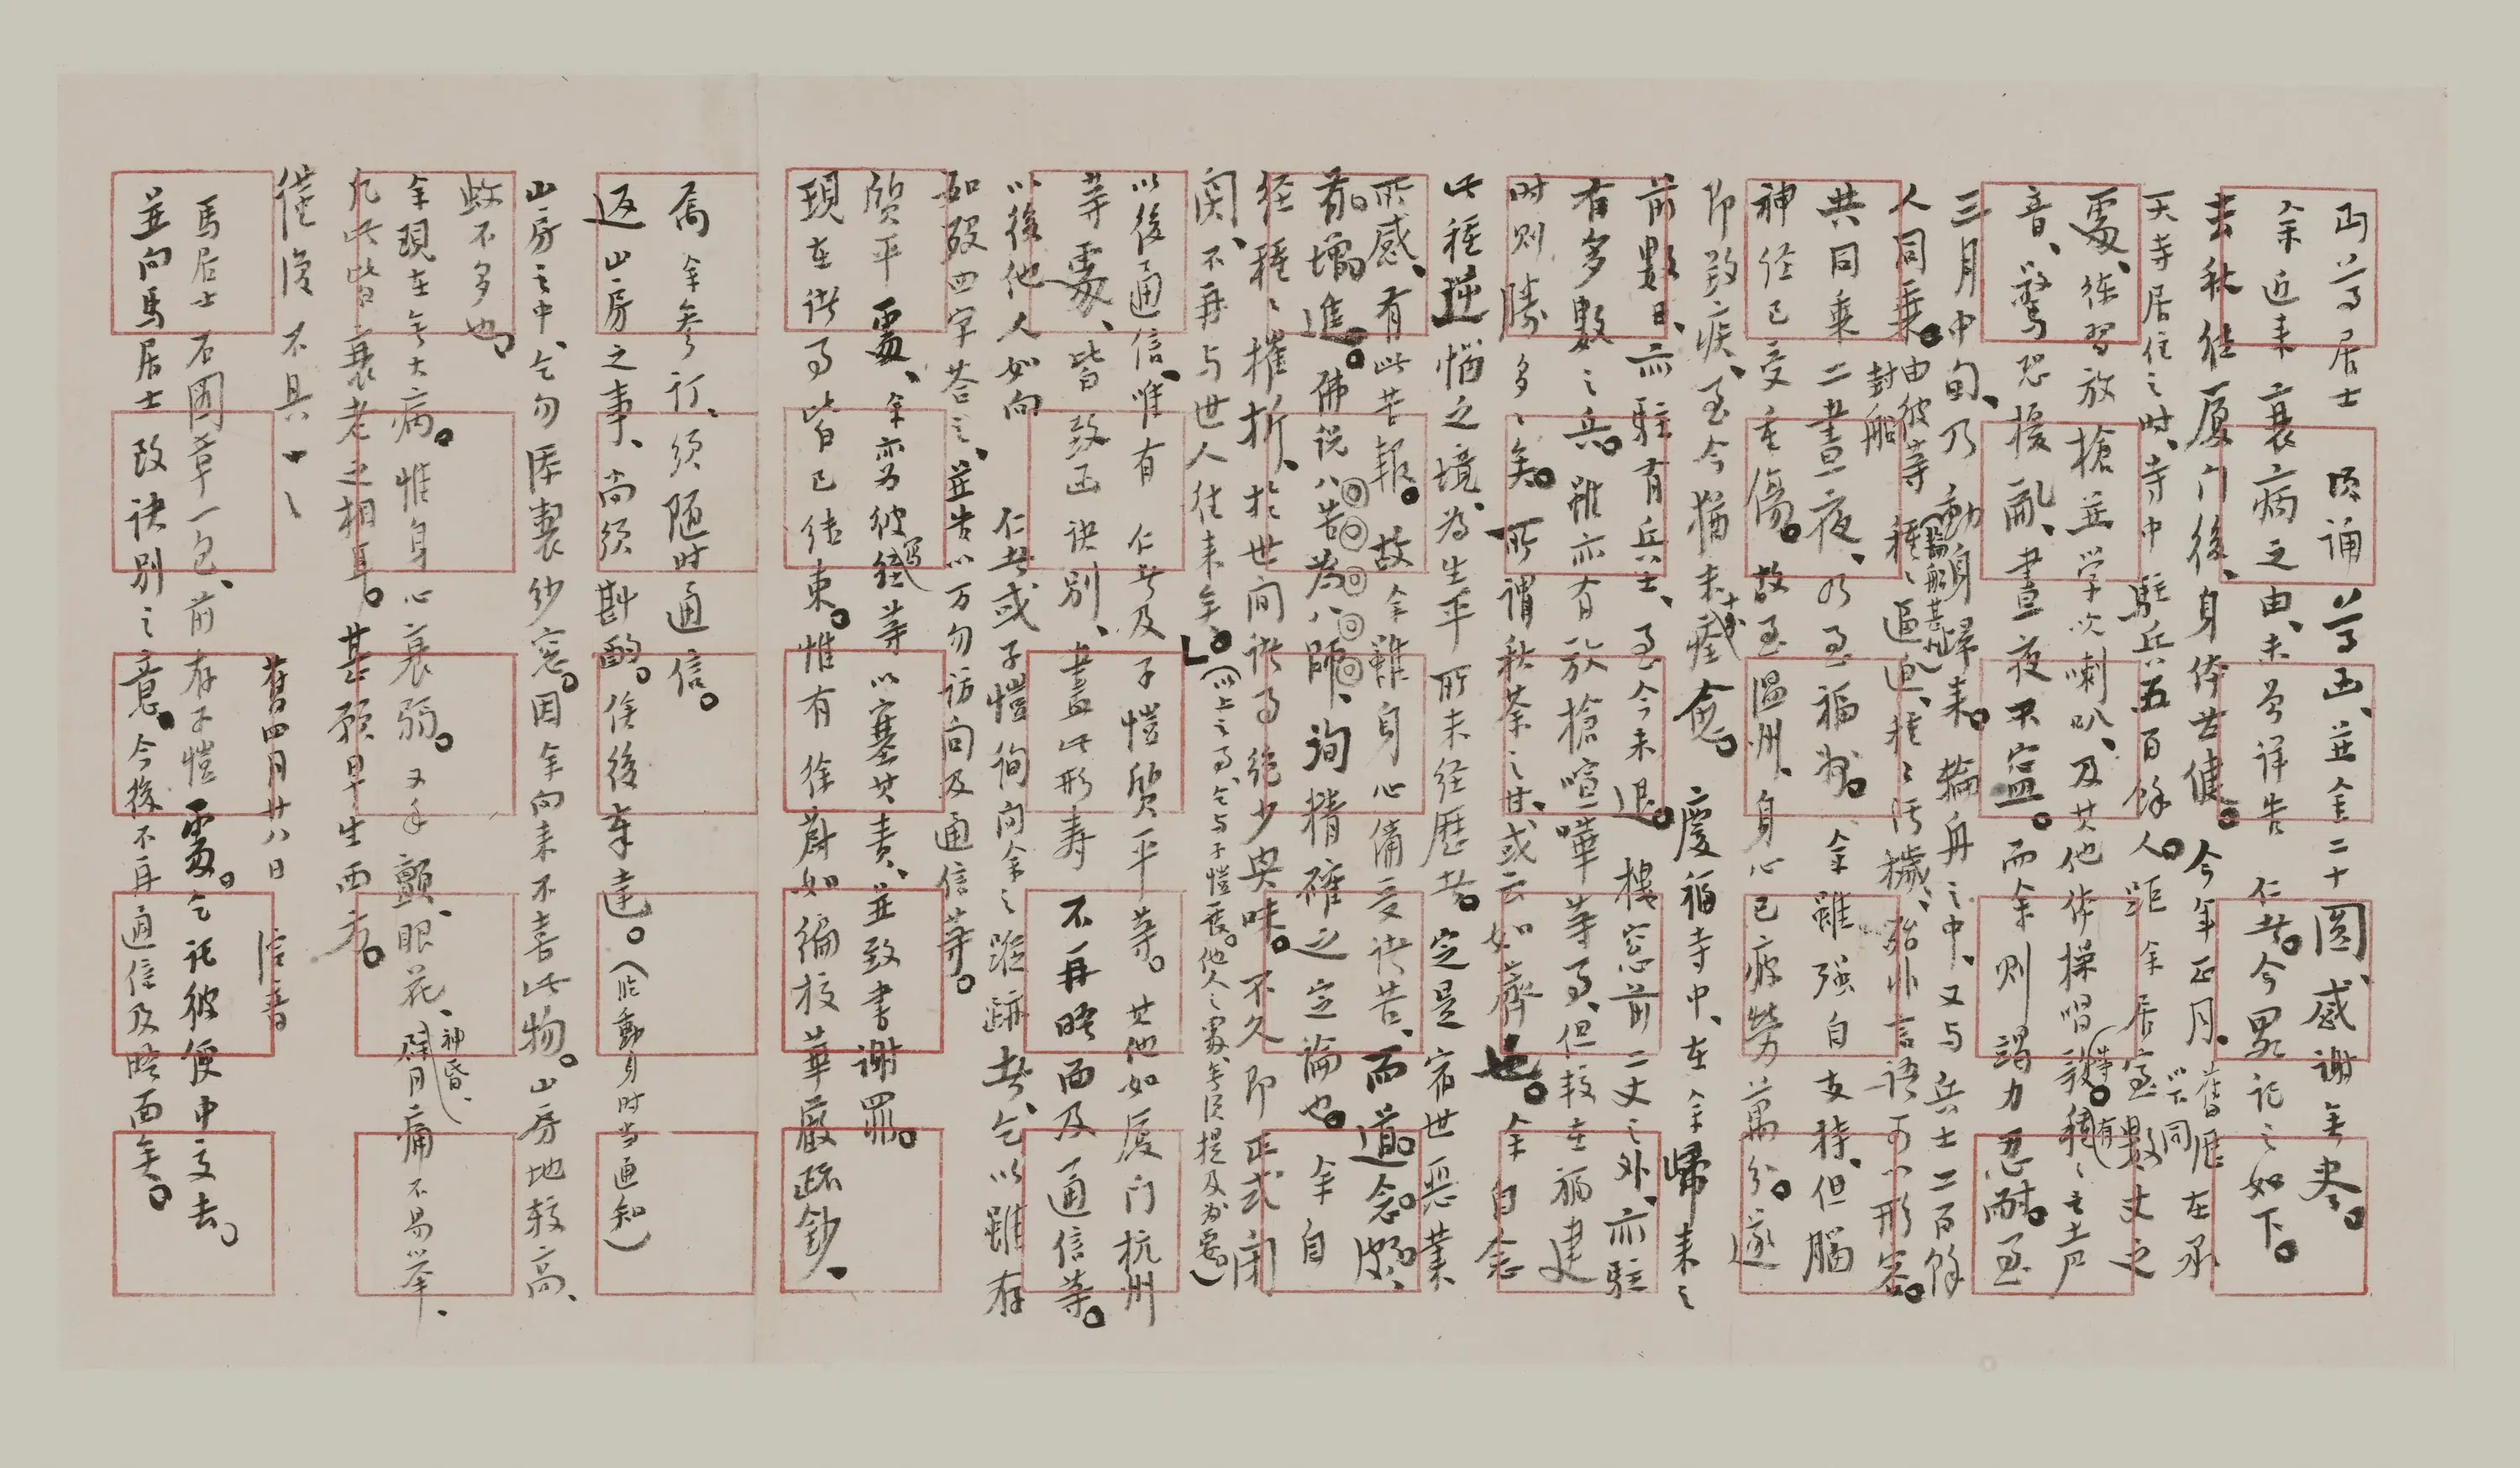 丏尊居士 頃誦尊函、並金二十圓、感謝無盡。
余近來衰病之由、未曾詳告 仁者。今略記之如下。
去秋往厦门後、身体甚健。今年正月、（舊歷以下同）在承
天寺居住之时、寺中駐兵五百餘人。距余居室數丈之
處、練習放槍並学吹喇叭、及其他体操唱歌等。（有種々之声
音、驚恐擾亂、晝夜不寧。而余則竭力忍耐。至
三月中旬、乃動身歸来。輪舟之中、又与兵士二百餘
人同乗。由彼等封船（開船甚久）種々逼迫、種々污穢、殆非言語可以形容。
共同乘二晝夜、乃至福州。余雖强自支持、但腦
神経已受重傷。故至温州、身心已疲勞萬分。遂
即致疾、至今猶未十成痊愈。 慶福寺中、在余歸来之
前數日、亦駐有兵士、至今未退。樓窓前二丈之外、亦駐
有多數之兵。雖亦有放槍喧嘩等事、但較在福建
时則勝多々矣。所謂秋荼之甘、或云如薺也。余自念
此種逆惱之境、為生平所未経歷者。定是宿世惡業
所感、有此苦報。故余雖身心備受诸苦、而道念頗
有增進。佛说八苦為八師、洵精確之定論也。余自
经種々摧折、於世间诸事絶少興味。不久即正式闭
関、不再与世人往来矣。（以上之事、乞与子愷一談。他人之處、無須提及為要）
以後通信、唯有 仁者及子愷质平等。其他如厦门杭州
等處、皆致函诀别、盡此形寿不再晤面及通信等。
以後他人如向 仁者或子愷询问余之踪跡者、乞以雖存
如殁四字答之、並告以万勿访问及通信等。
质平處、余亦为彼写経等以塞其责、並致書谢罪。
現在诸事皆已结束。惟有徐蔚如编校華嚴疏鈔、
属余參订、须随时通信。
返山房之事、尚须斟酌。俟後奉達。（临動身时当通知）
山房之中、乞勿添製纱窓。因余向来不喜此物。山房地較高、
蚊不多也。
余現在無大病。惟身心衰弱。又手顫、眼花、神昏、臂痛不易举、
凡此皆衰老之相耳。甚願早生西方。
谨復 不具一一
舊四月廿八日 信音
馬居士石圖章一包、前存子愷處。乞托彼便中交去。
並向馬居士致诀别之意。今後不再通信及晤面矣。